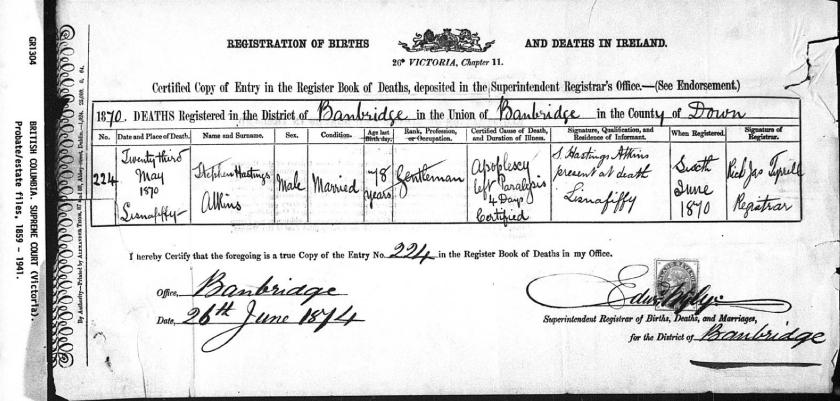 GR1304 BRITISH COLUMBIA. SUPREME COURT (Victoria).
Probate/estate files, 1859 - 1941.
REGISTRATION OF BIRTHS AND DEATHS IN IRELAND.
26° VICTORIA, Chapter 11.
Certified Copy of Entry in the Register Book of Deaths, deposited in the Superintendent Registrar's Office.—(See Endorsement.)
1870. DEATHS Registered in the District of Banbridge in the Union of Banbridge in the County of Down
No. Date and Place of Death. Name and Surname. Sex. Condition. Age last Birth-day. Rank, Profession, or Occupation. Certified Cause of Death, and Duration of Illness. Signature, Qualification, and Residence of Informant. When Registered. Signature of Registrar.
224
Twenty third
May
1870
Lisnafiffy
Stephen Hastings
Atkins
Male
Married
78
years
Gentleman
Apoplexy
left Paralysis
4 Days
Certified
S. Hastings Atkins
present at death
Lisnafiffy
Sixth
June
1870
Rich Jas Tyrrell
Registrar
I hereby Certify that the foregoing is a true Copy of the Entry No. 224 in the Register Book of Deaths in my Office.
Office, Banbridge
Date, 26th June 1874
Superintendent Registrar of Births, Deaths, and Marriages,
for the District of Banbridge